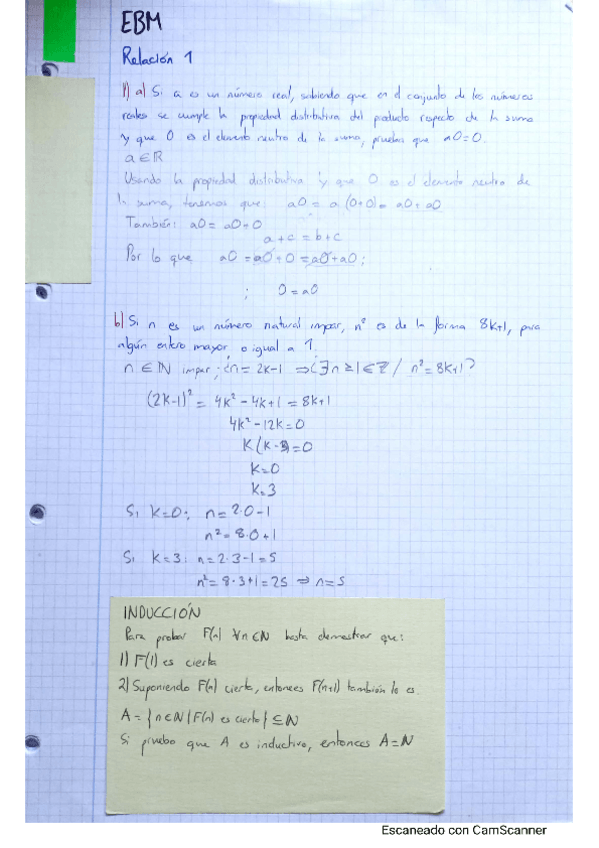 EBM
Relación 1
1) a) Si a es un número real, sabiendo que en el conjunto de los números
reales se cumple la propiedad distributiva del producto respecto de la suma
y que 0 es el elemento neutro de la suma, pruebas que a0=0.
a∈ℝ
Usando la propiedad distributiva y que 0 es el elemento neutro de
la suma, tenemos que: a0 = a (0+0) = a0 + a0
También: a0 = a0+0
a+c = b+c
Por lo que a0 = a0 + 0 = a0 + a0 ;
; 0 = a0
b) Si n es un número natural impar, n² es de la forma 8k+1, para
algún entero mayor o igual a 1.
n ∈ ℕ impar; ¿n = 2k-1 ⇒ ¿∃n ≥ 1 ∈ ℤ / n² = 8k+1?
(2k-1)² = 4k² - 4k + 1 = 8k+1
4k² - 12k = 0
k(k-3) = 0
k=0
k=3
Si k=0; n = 2·0-1
n² = 8·0+1
Si k=3: n = 2·3-1 = 5
n² = 8·3+1 = 25 ⇒ n=5
INDUCCIÓN
Para probar F(n) ∀n∈ℕ basta demostrar que:
1) F(1) es cierta
2) Suponiendo F(n) cierta, entonces F(n+1) también lo es.
A = {n∈ℕ | F(n) es cierta} ⊆ ℕ
Si pruebo que A es inductivo, entonces A=ℕ
Escaneado con CamScanner